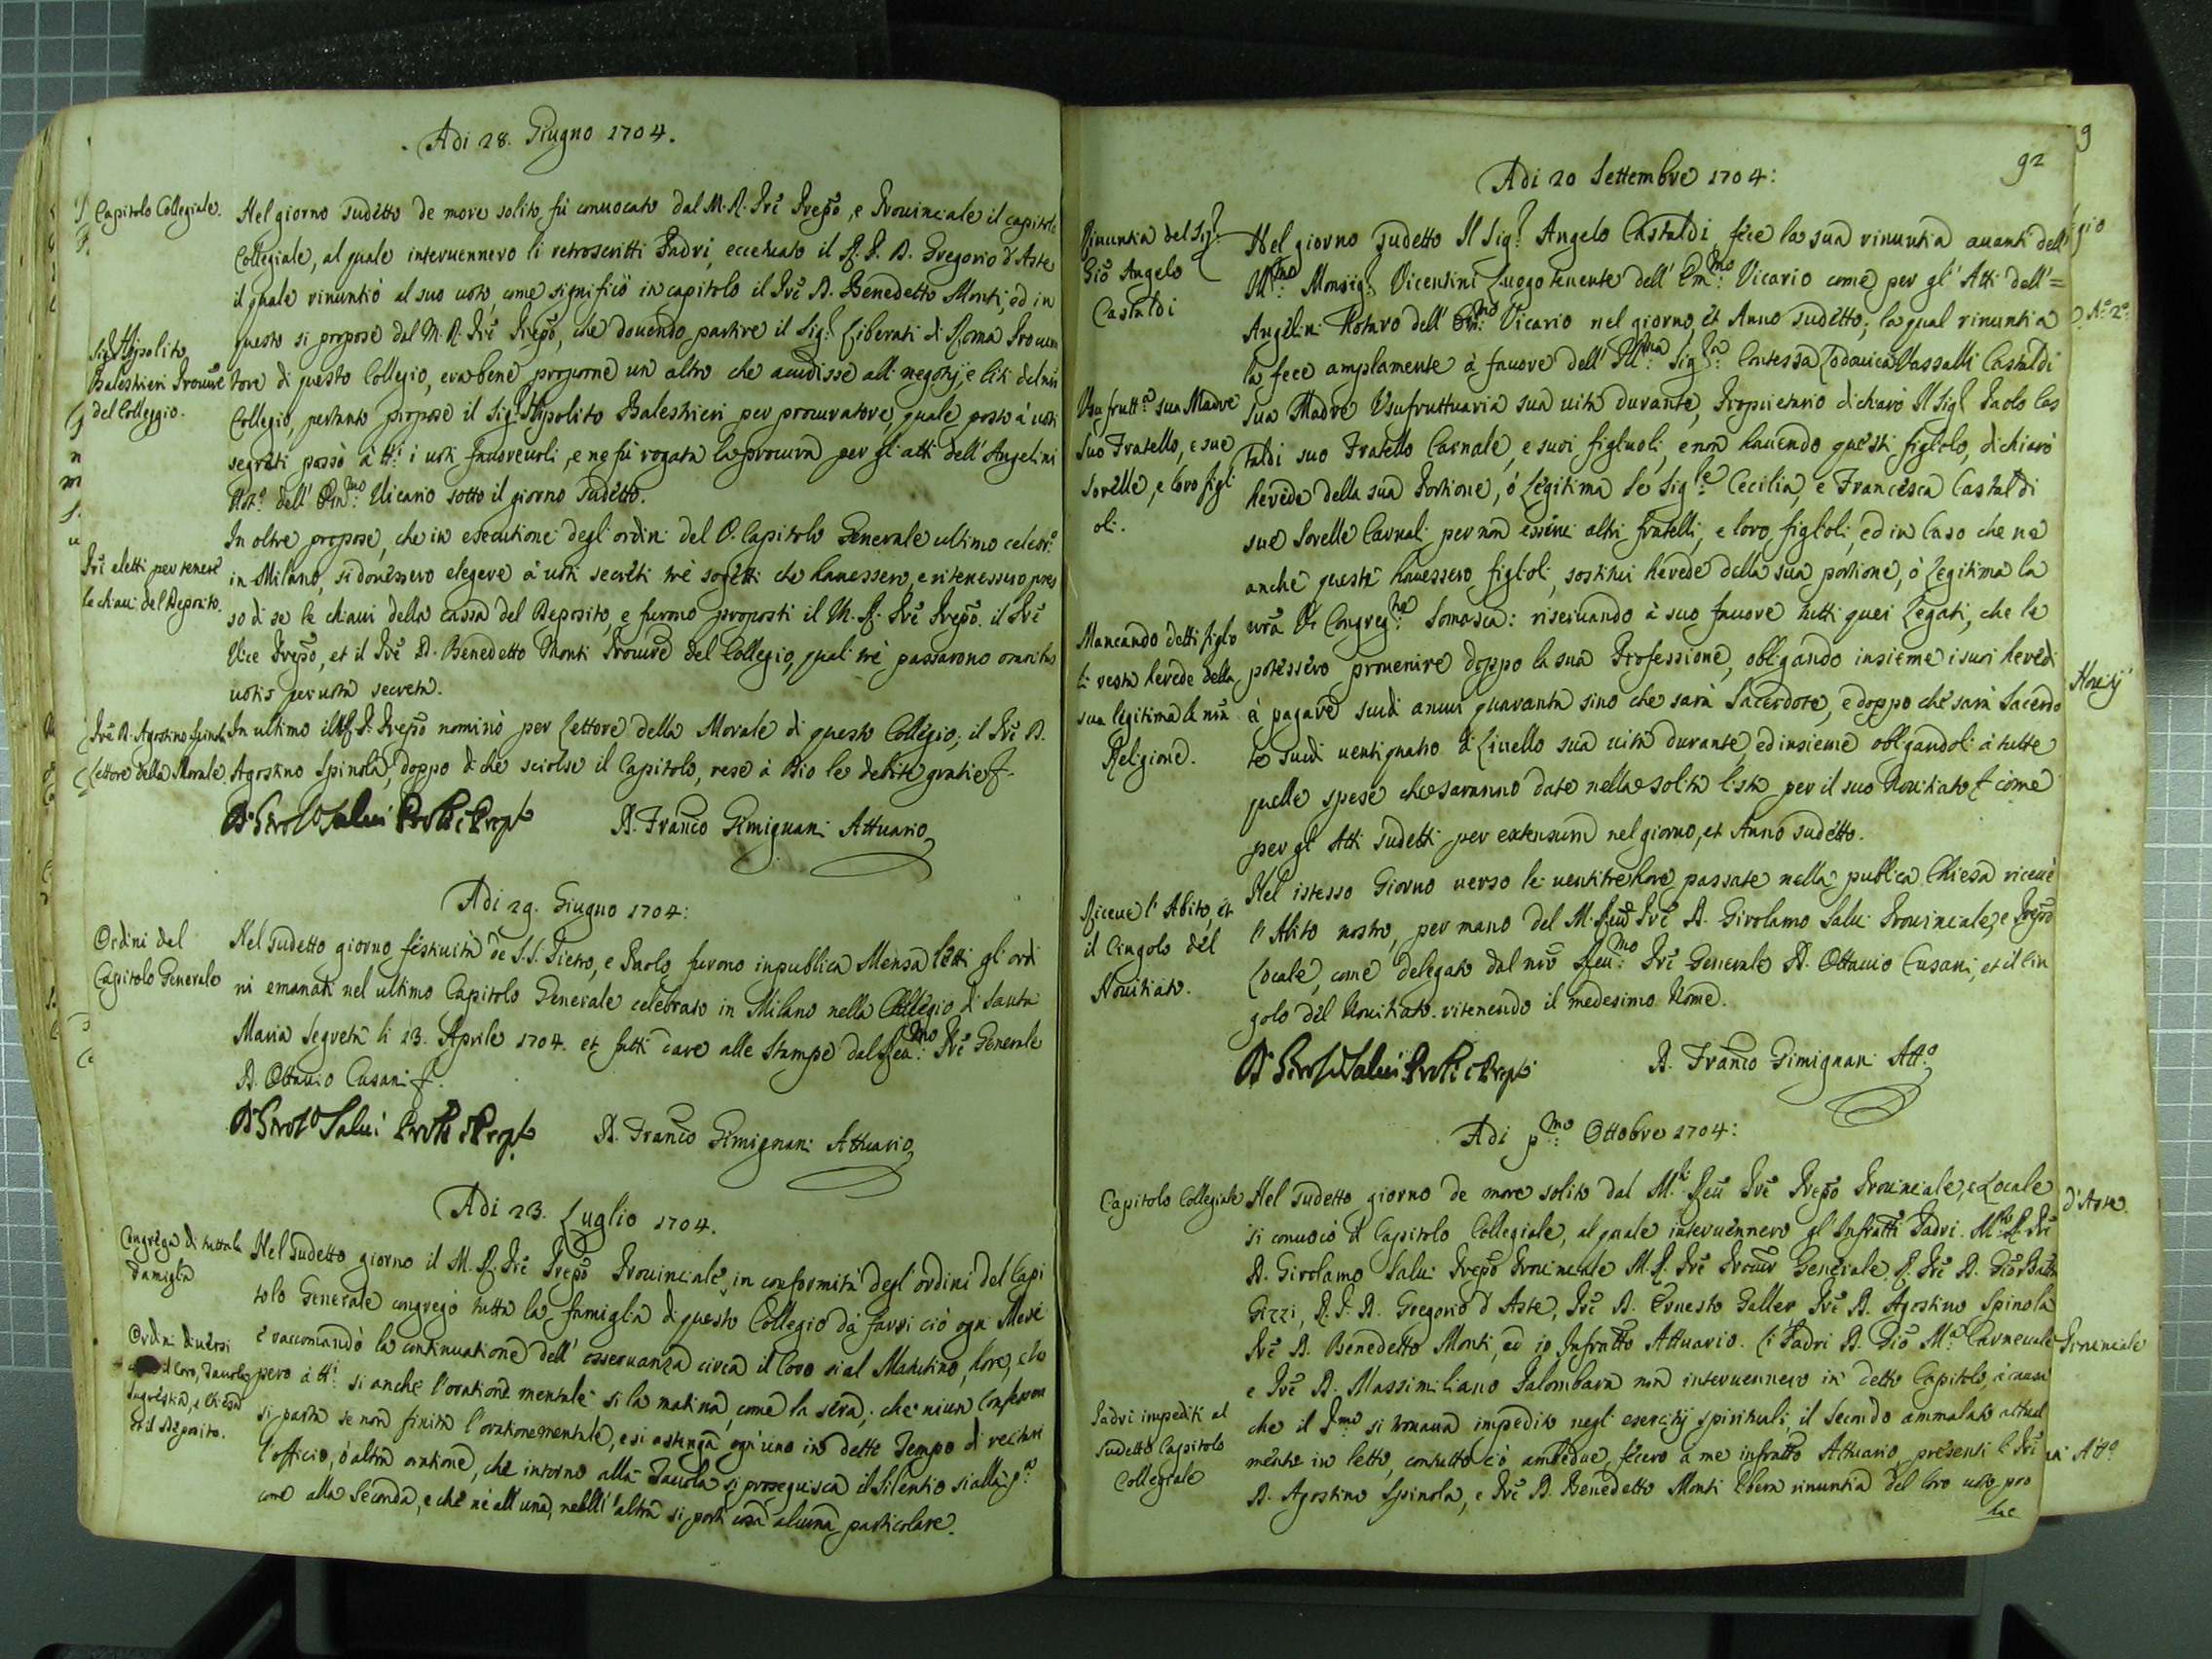 Adi 28. Giugno 1704.
Capitolo Collegiale.
Nel giorno sudetto de more solito, fù conuocato dal M. R. Pre Prepo, e Prouinciale il capitolo
Collegiale, al quale interuennero li retroscritti Padri, eccettuato il R. P. D. Gregorio d'Aste
il quale rinuntiò al suo uoto, come significò in capitolo il Pre D. Benedetto Monti, ed in
questo si propose dal M. R. Pre Prepo, che douendo partire il Sig.r Liberati di Roma Procura
Sig.r Hipolito
Balestrieri Procure
del Colleggio.
tore di questo Collegio, era bene proporne un altro che accudisse alli negotij, e liti del
Collegio, pertanto propose il Sig.r Hipolito Balestrieri per procuratore, quale posto à uoti
segreti passò à tt.i i uoti fauoreuoli, e ne fù rogata la procura per gl'atti dell'Angelini
Not.o dell'Em.mo Vicario sotto il giorno sudetto.
In oltre propose, che in esecutione degl'ordini del V. Capitolo Generale ultimo celebr.o
Pri eletti per tenere
le chiaui del Deposito.
in Milano, si douessero elegere à uoti secreti trè sogetti che hauessero, e ritenessero pres
so di se le chiaui della cassa del Deposito, e furono proposti il M. R. Pre Prepo. il Pre
Vice Prepo, et il Pre D. Benedetto Monti Procure del Collegio, quali trè passarono omnibus
uotis per uota secreta.
Pre D. Agostino Spinola
Lettore della Morale
In ultimo il M. R. P. Prepo nominò per Lettore della Morale di questo Collegio, il Pre D.
Agostino Spinola, doppo di che sciolse il Capitolo, rese à Dio le debite gratie
D. Girol.o Salui Prou.le e Prep.to
D. Franco Gimignani Attuario
Adi 29. Giugno 1704:
Ordini del
Capitolo Generale
Nel sudetto giorno festiuità de S.S. Pietro, e Paolo, furono in publica Mensa letti gl'ordi
ni emanati nel ultimo Capitolo Generale celebrato in Milano nella Collegio di Santa
Maria Segreta li 13. Aprile 1704. et fatti dare alle Stampe dal Reu.mo Pre Generale
D. Ottauio Cusani
D. Girol.o Salui Prou.le e Prep.to
D. Franco Gimignani Attuario
Adi 23. Luglio 1704.
Congrega di tutta la
famiglia
Nel sudetto giorno il M. R. Pre Prepo Prouinciale, in conformità degl'ordini del Capi
tolo Generale congregò tutta la famiglia di questo Collegio dà farsi ciò ogni Mese
Ordini diuersi
il Coro, Tauola
Sagrestia, e Chiesa
et il Deposito.
e raccomandò la continuatione dell'osseruanza circa il Coro si al Matutino, hore,
pero à tt.i si anche l'oratione mentale si la matina, come la sera; che niun Confessore
si parta se non finita l'oratione mentale, e si astenga ogn'uno in dette Tempo di recitare
l'officio, ò altra oratione, che intorno alla Tauola si proseguisca il Silentio si alla p.a
come alla Seconda, e che nè all'una, nè all'altra si porti cosa alcuna particolare.
92
Adi 20 Settembre 1704:
Rinuntia del Sig.r
Gio Angelo
Castaldi
Nel giorno sudetto Il Sig.r Angelo Castaldi, fece la sua rinuntia auanti dell'
Ill.mo Monsig.r Vicentini Luogotenente dell'Em.mo Vicario come per gl'Atti dell'=
Angelini Notaro dell'Em.mo Vicario nel giorno, et Anno sudetto; la qual rinuntia
la fece amplamente à fauore dell'Ill.ma Sig.ra Contessa Lodouica Vassalli Castaldi
Usufrutt.a sua Madre
Suo Fratello, e sue
Sorelle, e loro figli
oli.
sua Madre Usufruttuaria sua uita durante, Proprietario dichiarò Il Sig.r Paolo Cas
taldi suo Fratello Carnale, e suoi figliuoli, e non hauendo questi figliolo, dichiarò
herede della sua Portione, ò Legitima le Sig.re Cecilia, e Francesca Castaldi
sue Sorelle Carnali per non esserui altri fratelli, e loro figlioli, ed in Caso che ne
anche queste hauessero figlioli, sostituì herede della sua portione, ò Legitima la
Mancando detti figlio
li resta herede della
sua legitima la nra
Religione.
nra V. Congreg.ne Somasca: riseruando à suo fauore tutti quei Legati, che le
potessero prouenire doppo la sua Professione, obligando insieme i suoi heredi
à pagare scudi annui quaranta sino che sarà Sacerdote, e doppo che sarà Sacerdo
te scudi uentiquatro di Liuello sua uita durante, ed insieme obligandoli à tutte
quelle spese che saranno date nella solita lista per il suo Nouitiato come
per gl'Atti sudetti per extensum nel giorno, et Anno sudetto.
Riceue l'Abito, et
il Cingolo del
Nouitiato.
Nel istesso Giorno uerso le uentitre hore passate nella publica Chiesa riceuè
l'Abito nostro, per mano del M. Reu. Pre D. Girolamo Salui Prouinciale, e Prepo
Locale, come delegato dal nro Reu.mo Pre Generale D. Ottauio Cusani, et il Cin
golo del Nouitiato. ritenendo il medesimo Nome.
D. Girol.o Salui Prou.le e Prep.to
D. Franco Gimignani Att.o
Adi p.mo Ottobre 1704:
Capitolo Collegiale
Nel sudetto giorno de more solito dal M. Reu Pre Prepo Prouinciale, e Locale
si conuocò il Capitolo Collegiale, al quale interuennero gl'Infratti Padri. M. R. Pre
D. Girolamo Salui Prepo Prouinciale M. R. Pre Procur Generale, R. Pre D. Gio Batta
Gizzi, R. P. D. Gregorio d'Aste, Pre D. Ernesto Galler Pre D. Agostino Spinola
Pre D. Benedetto Monti, ed io Infratto Attuario. Li Padri D. Gio M.a Carneuale
e Pre D. Massimiliano Palombara non interuennero in detto Capitolo, à causa
Padri impediti al
Sudetto Capitolo
Collegiale
che il P.mo si trouaua impedito negl'esercitij spirituali, il Secondo ammalato attual
mente in letto, contutto ciò ambedue, fecero à me infratto Attuario, presenti li Pri
D. Agostino Spinola, e Pre D. Benedetto Monti libera rinuntia del loro uoto pro
hac
9
d'Aste.
Prouinciale
Att.o